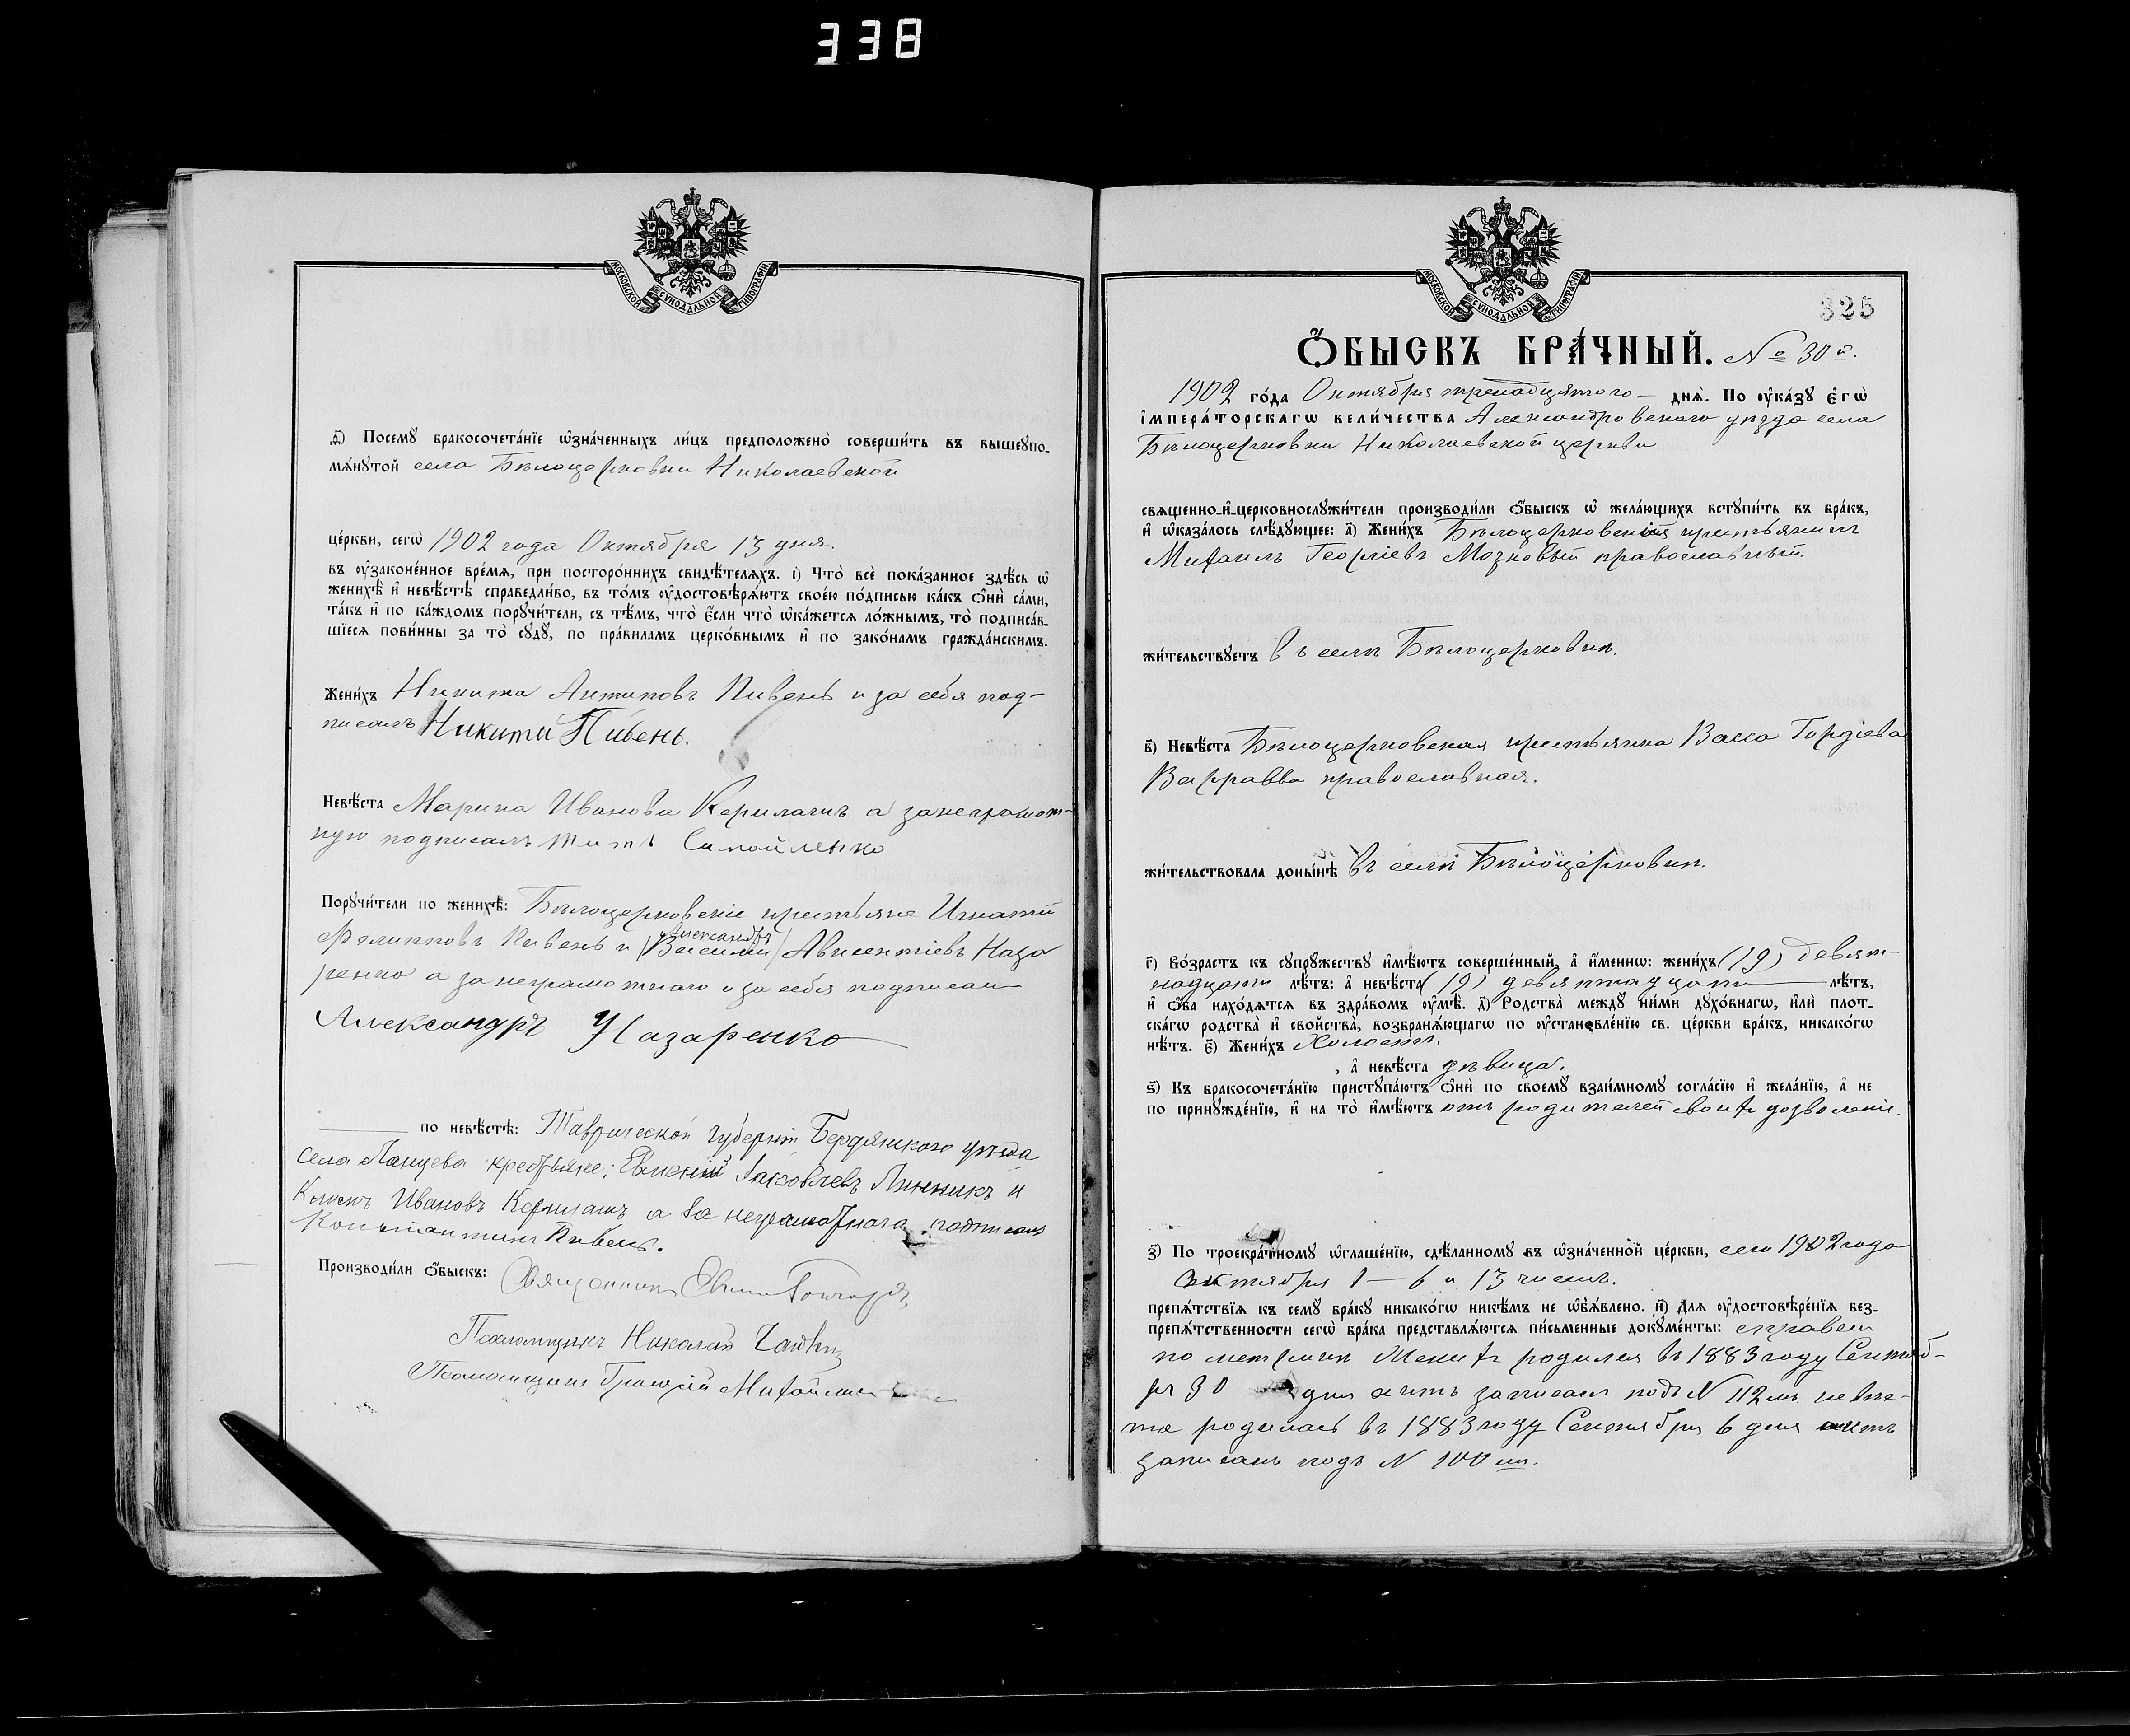 338
МОСКОВСКОЙ СѴНОДАЛЬНОЙ ТИПОГРАФІИ
ѳ҃) Посемꙋ̀ бракосочета́нїе ѡ҆зна́ченныхъ ли́цъ предположено̀ соверши́ть въ вышеꙋпо-
мѧ́нꙋтой села Бѣлоцерковки Николаевской
це́ркви, сегѡ̀ 1902 года Октября 13 дня.
въ ᲂу҆зако́нённое вре́мѧ, при посторо́ннихъ свидѣ́телѧхъ. і҃) Что̀ всѐ пока́занное здѣ́сь ѡ҆
женихѣ̀ и҆ невѣ́стѣ справедли́во, въ то́мъ ᲂу҆достовѣрѧ́ютъ свое́ю по́дписью ка́къ ѻ҆нѝ са́ми,
та́къ и҆ по ка́ждомъ порꙋчи́тели, съ тѣ́мъ, что̀ є҆́сли что̀ ѡ҆ка́жетсѧ ло́жнымъ, то̀ подписа́в-
шїесѧ пови́нны за то̀ сꙋдꙋ̀, по пра́виламъ церко́внымъ и҆ по зако́намъ гражда́нскимъ.
Жени́хъ Никита Антиповъ Пивень и за себя под-
писалъ Никита Пивень.
Невѣ́ста Марина Иванова а занеграмот-
ную подписалъ Титъ Самойленко
Порꙋчи́тели по женихѣ̀: Бѣлоцерковскіе крестьяне Игнатій
Филипповъ Пивень и (Василій) Александръ Авксентіевъ Наза
ренко а за неграмотнаго и за себя подписалъ
Александръ Назаренко
по невѣ́стѣ: Таврической губерніи Бердянскаго уѣзда
села крестьяне: Евгеній Яковлевъ Линникъ и
Ивановъ а за неграмотнаго подписалъ
Константинъ Пивень.
Производи́ли ѻ҆́быскъ: Священникъ
Псаломщикъ Николай
Псаломщикъ
МОСКОВСКОЙ СѴНОДАЛЬНОЙ ТИПОГРАФІИ
325
Ѻ҆́БЫСКЪ БРА́ЧНЫЙ. № 30й.
1902 го́да Октября тренадцятого — днѧ̀. По ᲂу҆ка́зꙋ Є҆гѡ̀
І҆мпера́торскагѡ Вели́чества Александровскаго уѣзда села
Бѣлоцерковки Николаевской церкви
свѧще́нно-и҆-церковнослꙋжи́тели производи́ли ѻ҆́быскъ ѡ҆ жела́ющихъ встꙋпи́ть въ бра́къ,
и҆ ѡ҆каза́лось слѣ́дꙋющее: а҃) Жени́хъ Бѣлоцерковскій крестьянинъ
Михаилъ Георгіевъ Мозковый православный.
жи́тельствꙋетъ въ селѣ Бѣлоцерковкѣ.
в҃) Невѣ́ста Бѣлоцерковская крестьянка Васса Гордіева
Варравва православная.
жи́тельствовала доны́нѣ въ селѣ Бѣлоцерковкѣ.
г҃) Во́зрастъ къ сꙋпрꙋ́жествꙋ и҆мѣ́ютъ соверше́нный, а҆ и҆́меннѡ: жени́хъ (19) девят-
надцати лѣ́тъ: а҆ невѣ́ста (19) девятнадцати — лѣ́тъ,
и҆ ѻ҆́ба нахо́дѧтсѧ въ здра́вомъ ᲂу҆мѣ̀. д҃) Родства̀ междꙋ̀ ни́ми дꙋхо́внагѡ, и҆лѝ плот-
ска́гѡ родства̀ и҆ сво́йства, возбранѧ́ющагѡ по ᲂу҆становле́нїю св. це́ркви бра́къ, никако́гѡ
нѣ́тъ. є҃) Жени́хъ Холостъ.
, а҆ невѣ́ста дѣвица.
ѕ҃) Къ бракосочета́нїю пристꙋпа́ютъ ѻ҆нѝ по своемꙋ̀ взаи́мномꙋ согла́сїю и҆ жела́нїю, а҆ не
по принꙋжде́нїю, и҆ на то̀ и҆мѣ́ютъ отъ родителей своихъ дозволеніе.
з҃) По троекра́тномꙋ ѡ҆глаше́нїю, сдѣ́ланномꙋ въ ѡ҆зна́ченной це́ркви, сего 1902 года
октября 1 — 6 и 13 чиселъ.
препѧ́тствїѧ къ семꙋ̀ бра́кꙋ никако́гѡ никѣ́мъ не ѡ҆б̾ѧ́влено. и҃) Для ᲂу҆достовѣре́нїѧ без-
препѧ́тственности сегѡ̀ бра́ка представлѧ́ютсѧ пи́сьменные докꙋме́нты: справка
по метрикѣ Женихъ родился въ 1883 году Сентяб-
ря 30 дня актъ записанъ подъ N 112мъ невѣс-
та родилась въ 1883 году Сентября 6 дня актъ
записанъ подъ N 100мъ.